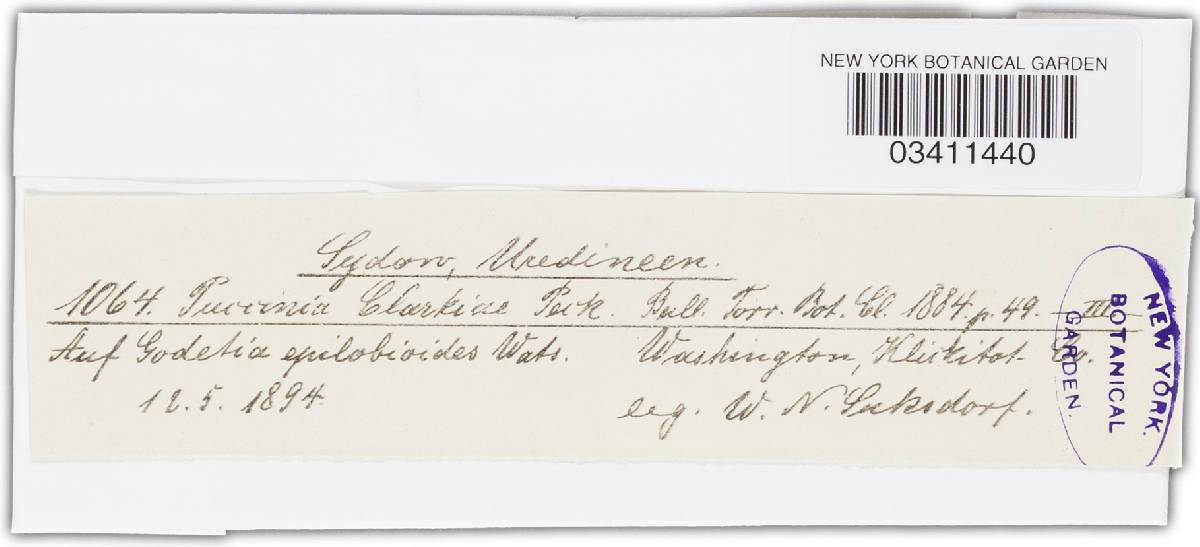 NEW YORK BOTANICAL GARDEN
03411440
Sydow, Uredineen.
1064. Puccinia Clarkiae Peck. Bull. Torr. Bot. Cl. 1884. p. 49. III
Auf Godetia epilobioides Wats. Washington, Klickitat Co.
12. 5. 1894 leg. W. N. Suksdorf.
NEW YORK.
BOTANICAL
GARDEN.